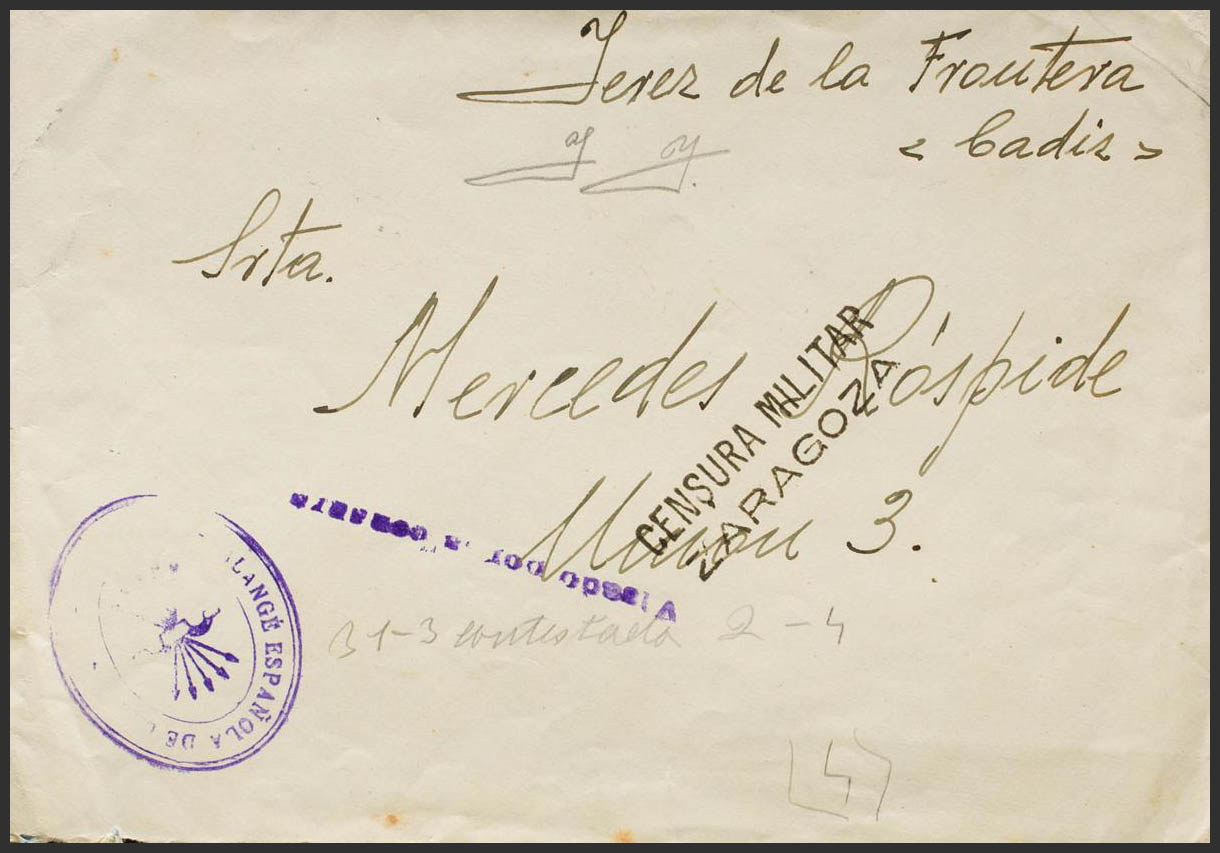 Jerez de la Frontera
< Cadiz >
Srta.
Mercedes Róspide
3.
CENSURA MILITAR
ZARAGOZA
Visado por la censura
LANGE ESPAÑOLA DE
31-3 contestada 2-4
4